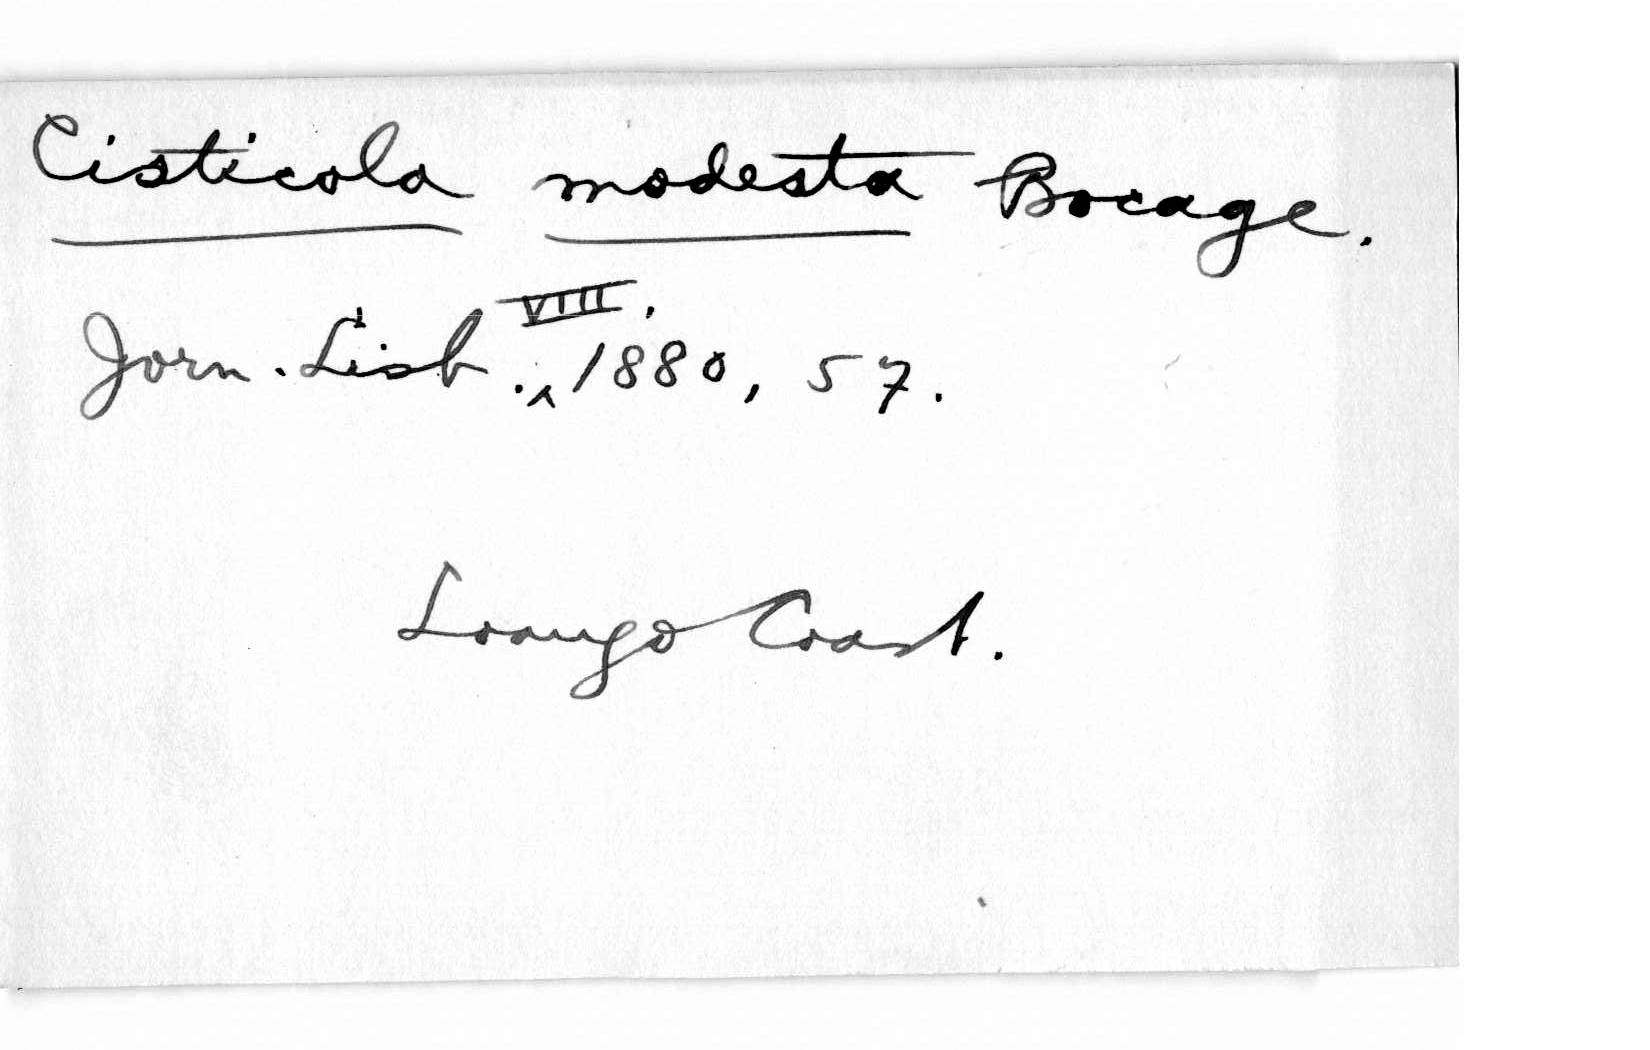 Cisticola modesta Bocage.
Jorn. Lisb. VIII, 1880, 57.
Loango Coast.